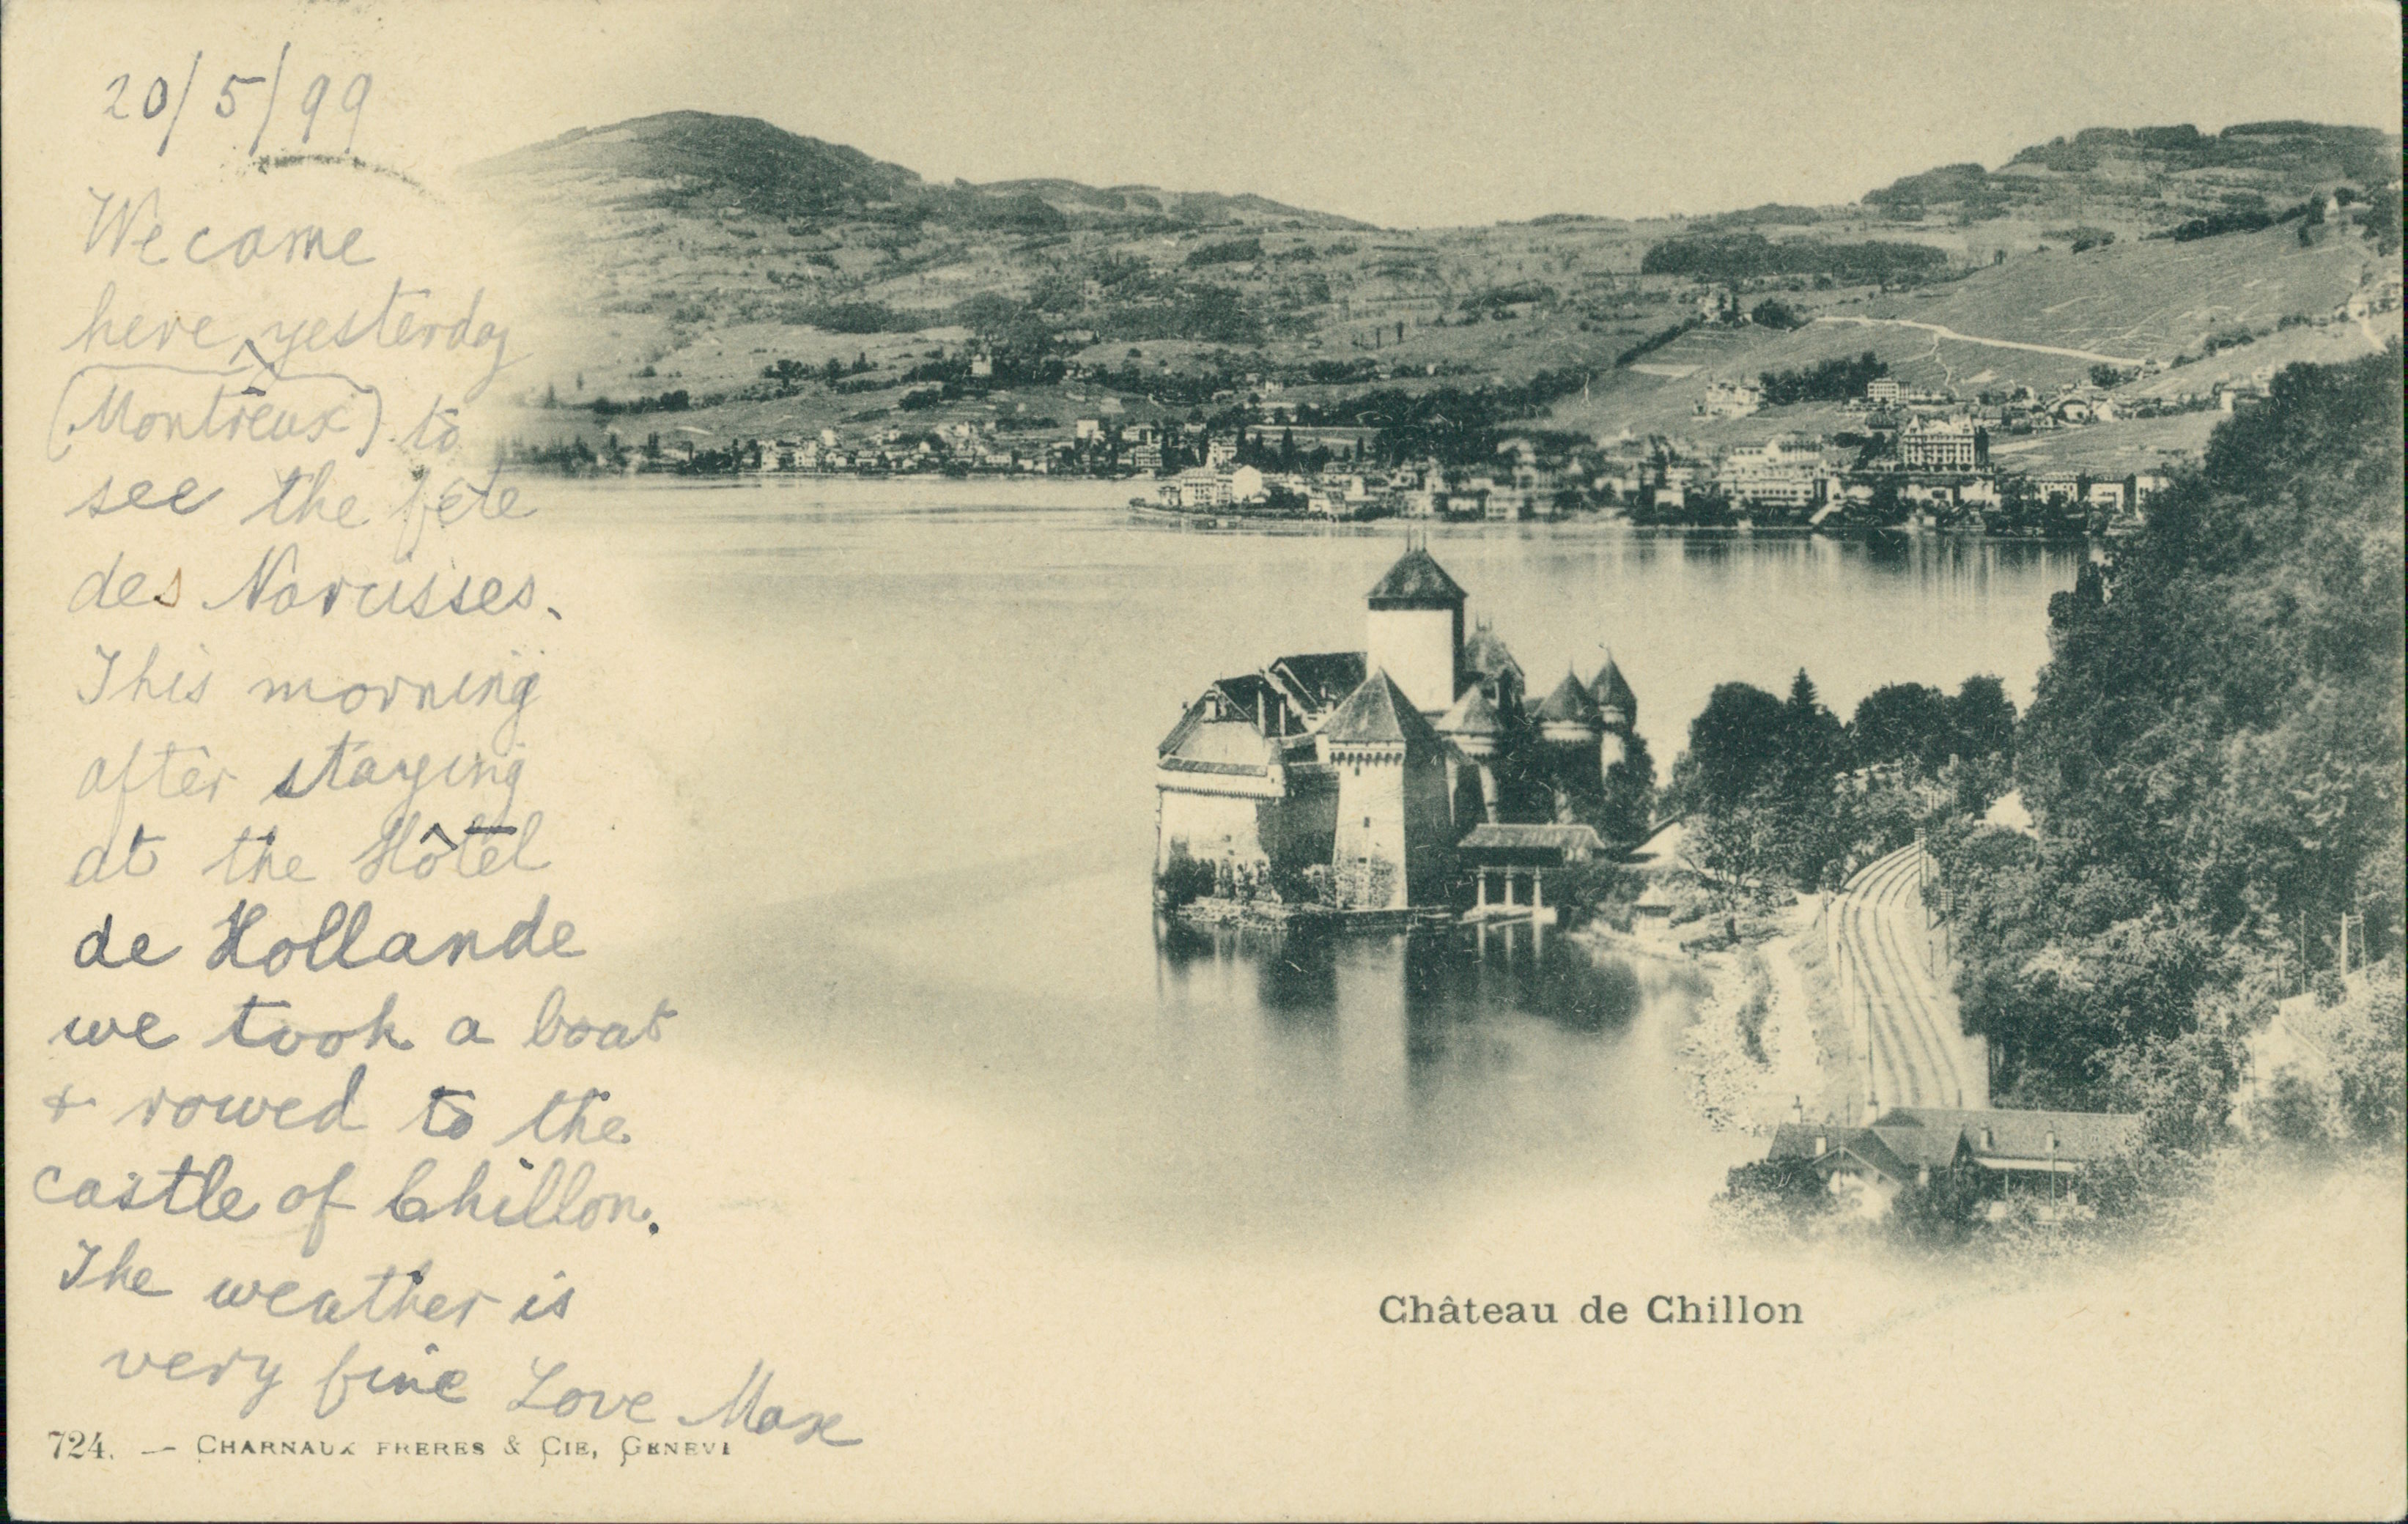 20/5/99
We came
here yesterday
(Montreux) to
see the fête
des Narcisses.
This morning
after staying
at the Hôtel
de Hollande
we took a boat
& rowed to the
castle of Chillon.
The weather is
very fine Love Max
Château de Chillon
724. — CHARNAUX FRERES & CIE, GENEVE